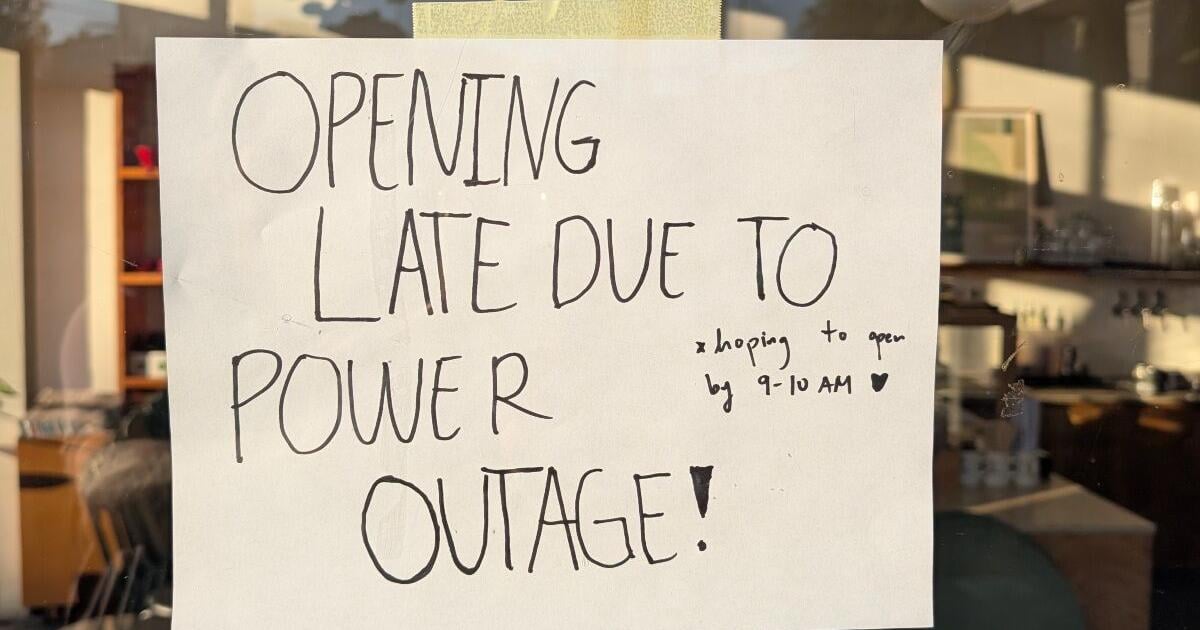 OPENING
LATE DUE TO
POWER
OUTAGE!
*hoping to open
by 9-10 AM ♥